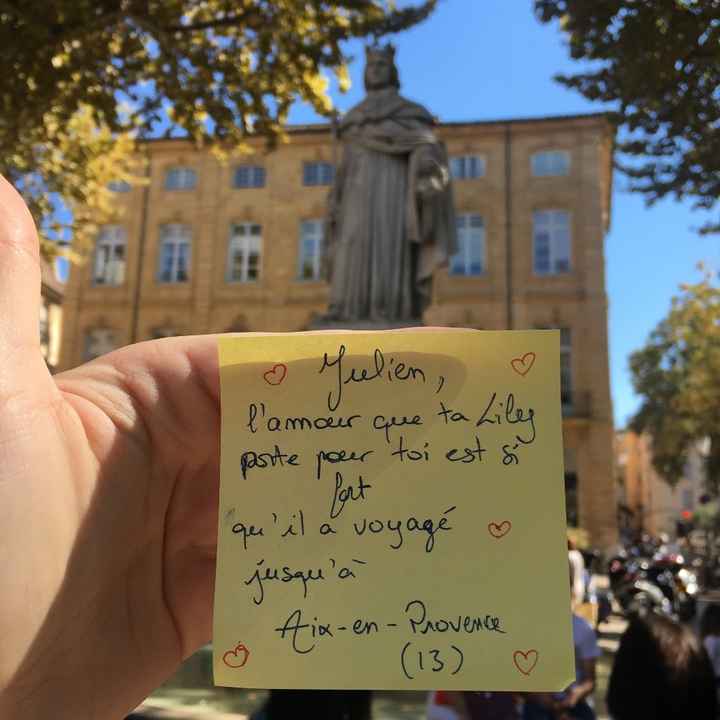 Julien,
l'amour que ta Liley
porte pour toi est si
fort
qu'il a voyagé
jusqu'à
Aix-en-Provence
(13)